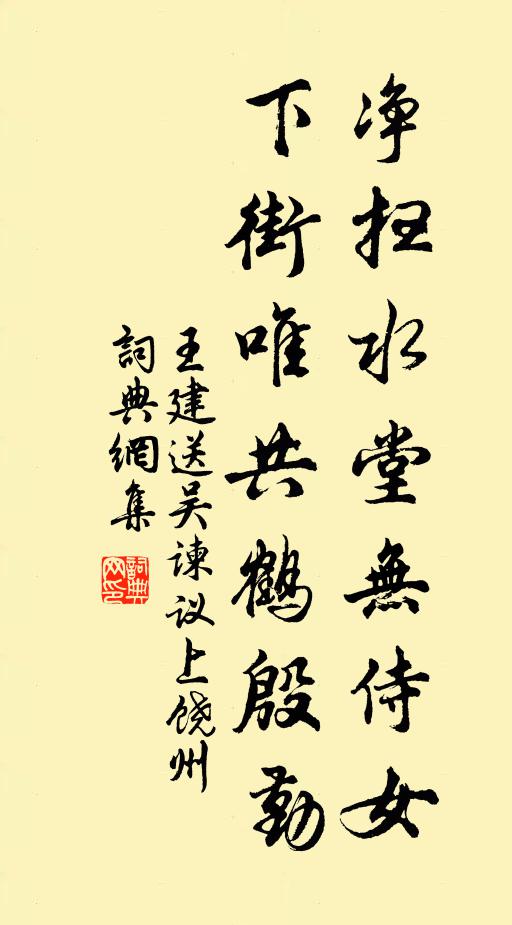 净扫水堂無侍女
下街唯共鹤殷勤
王建送吴谏议上饶州
詞典網集
詞典
网印